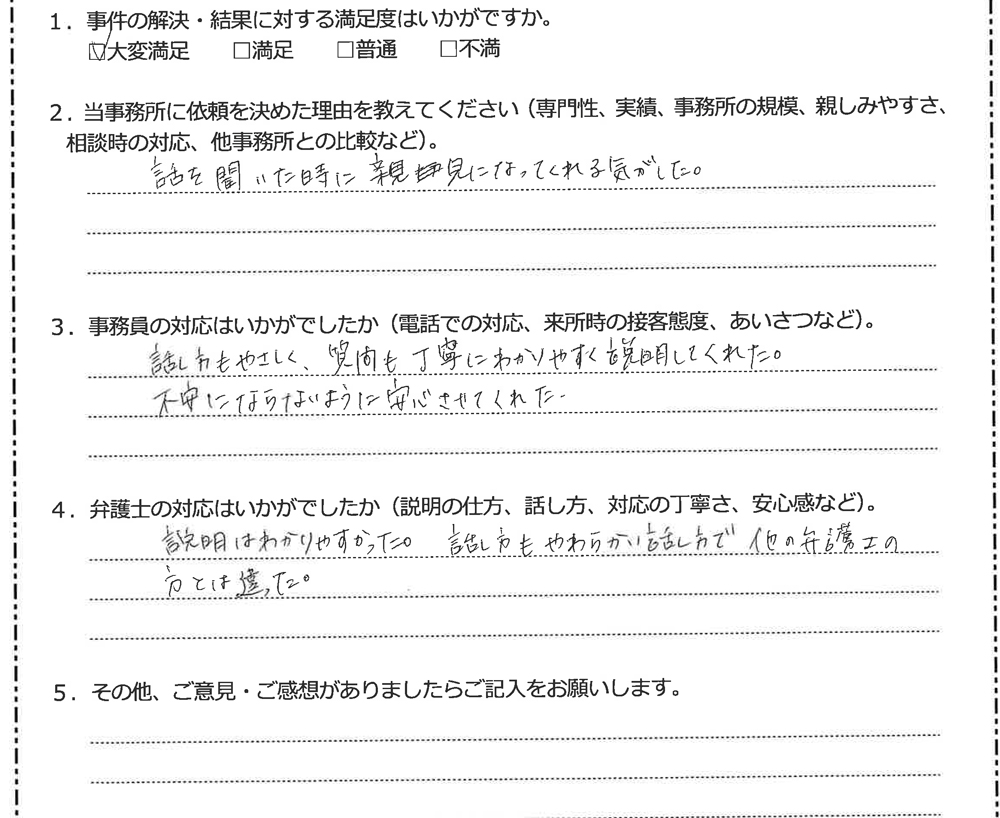 1．事件の解決・結果に対する満足度はいかがですか。
☑大変満足　□満足　□普通　□不満
2．当事務所に依頼を決めた理由を教えてください（専門性、実績、事務所の規模、親しみやすさ、
相談時の対応、他事務所との比較など）。
話を聞いた時に親身になってくれる気がした。
3．事務員の対応はいかがでしたか（電話での対応、来所時の接客態度、あいさつなど）。
話し方もやさしく、質問も丁寧にわかりやすく説明してくれた。
不安にならないように安心させてくれた。
4．弁護士の対応はいかがでしたか（説明の仕方、話し方、対応の丁寧さ、安心感など）。
説明はわかりやすかった。 話し方もやわらかい話し方で他の弁護士の
方とは違った。
5．その他、ご意見・ご感想がありましたらご記入をお願いします。